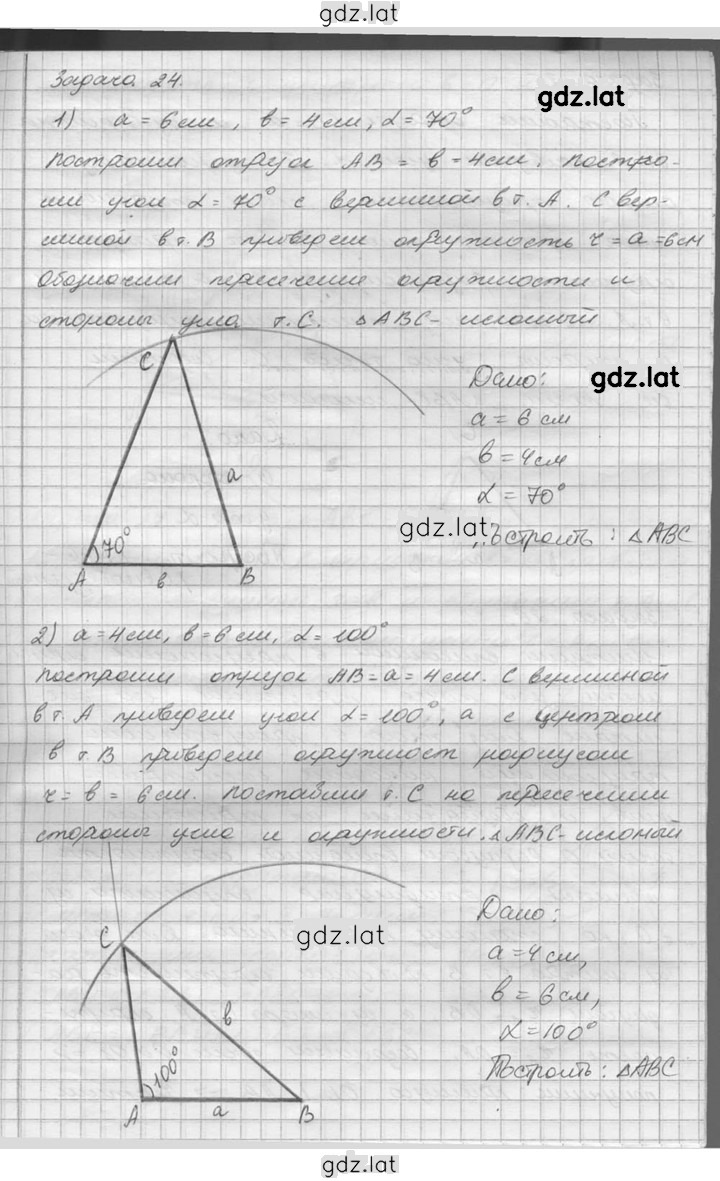 gdz.lat
Задача 24.
gdz.lat
1) a = 6 см, в = 4 см, α = 70°
Построим отрезок AB = в = 4 см. Постро-
им угол α = 70° с вершиной в т. A. С вер-
шиной в т. B приведем окружность r = a = 6 см
Обозначим пересечение окружности и
стороны угла т. C. △ABC - искомый
C
Дано:
gdz.lat
a = 6 см
в = 4 см
a
α = 70°
gdz.lat
Построить : △ABC
70°
A
в
B
2) a = 4 см, в = 6 см, α = 100°
Построим отрезок AB = a = 4 см. С вершиной
в т. A приведем угол α = 100°, а с центром
в т. B приведем окружност радиусом
r = в = 6 см. Поставим т. C на пересечении
стороны угла и окружности. △ABC - искомый
C
Дано:
gdz.lat
a = 4 см,
в = 6 см,
в
α = 100°
100°
Построить : △ABC
A
a
B
gdz.lat